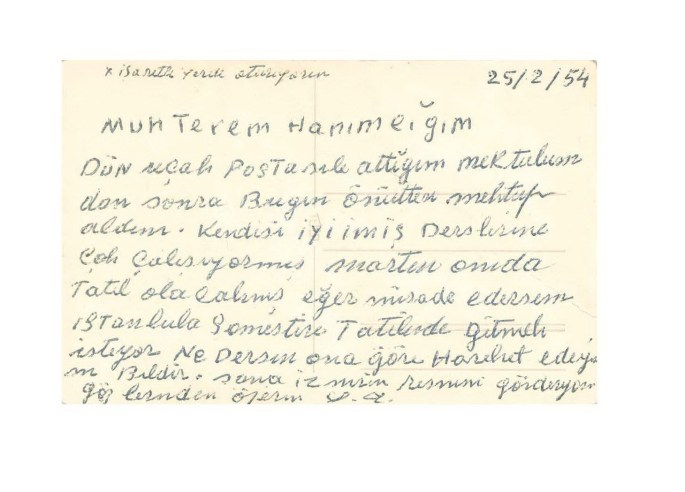 x işaretli yerde oturuyorum
25/2/54
Muhterem Hanımcığım
Dün uçak Postasile attığım mektubum
dan sonra Bugün mektup
aldım. Kendisi iyi imiş Derslerine
Çok Çalışıyormuş martın onıda
Tatil olacakmış eğer müsade edersem
istanbula Sömestire Tatilinde gitmek
istiyor Ne Dersin ona göre Hareket edeyi
m Bildir. sana izmirin resmini gönderiyom
göz lerinden öperim